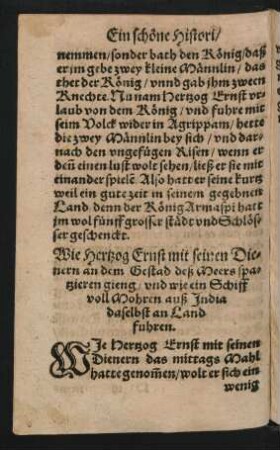 Ein schöne Histori/
nemmen/sonder bath den König/daß
er jm gebe zwey kleine Männlin/das
thet der König/vnnd gab jhm zween
Knechte. Nu nam Hertzog Ernst vr-
laub von dem König/vnd fuhre mit
seim Volck wider in Agrippam/hette
die zwey Männlin bey sich/vnd dar-
nach den vngefügen Risen/wenn er
deñ einen lust wolt sehen/ließ er sie mit
einander spielẽ. Also hatt er seine kurtz
weil ein gute zeit in seinem gegebnen
Land denn der König Armaspi hatt
jm wol fünff grosser städt vnd Schlös-
ser geschenckt.
Wie Hertzog Ernst mit seinen Die-
nern an dem Gestad deß Meers spa-
tzieren gieng/vnd wie ein Schiff
voll Mohren auß India
daselbst an Land
fuhren.
WJe Hertzog Ernst mit seinen
Dienern das mittags Mahl
hatte genom̃en/wolt er sich ein
wenig